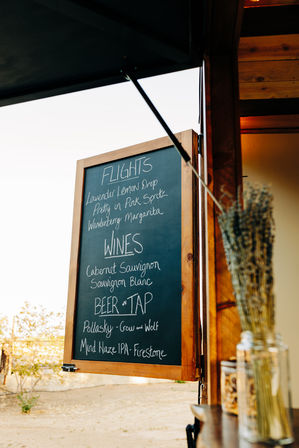 FLIGHTS
Lavender Lemon Drop
Pretty in Pink Spritz
Wonderberry Margarita
WINES
Cabernet Sauvignon
Sauvignon Blanc
BEER on TAP
Pollasky - Crow and Wolf
Mind Haze IPA - Firestone